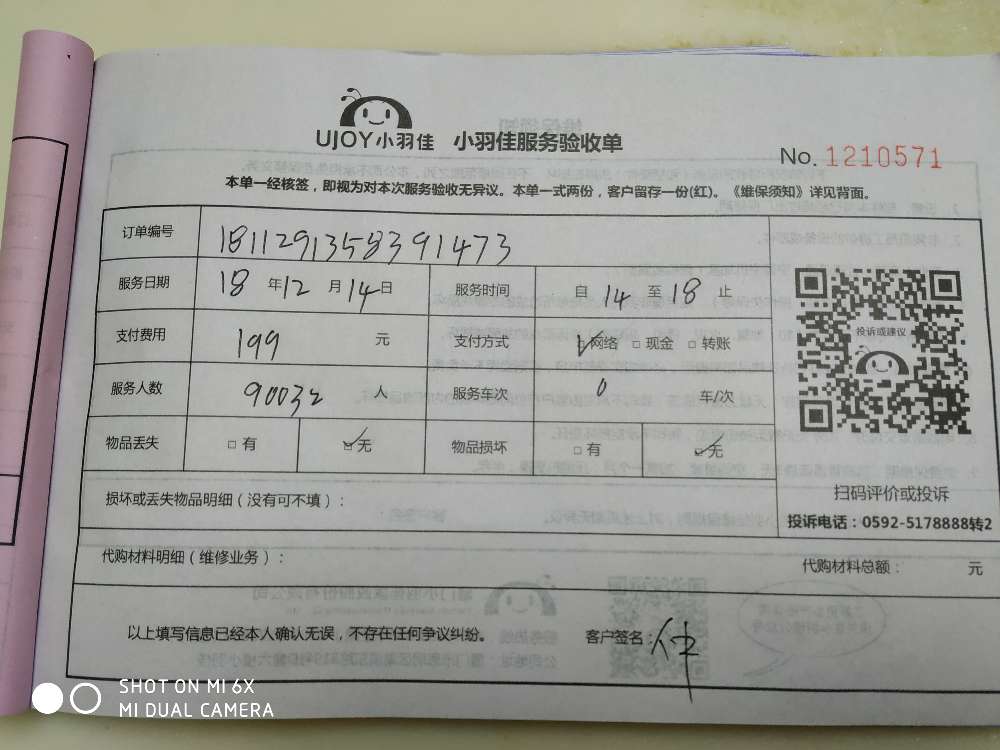 UJOY小羽佳 小羽佳服务验收单
No. 1210571
本单一经核签，即视为对本次服务验收无异议。本单一式两份，客户留存一份(红)。《维保须知》详见背面。
订单编号 1811291358391473
服务日期 18 年 12 月 14 日 服务时间 自 14 至 18 止
支付费用 199 元 支付方式 ☑网络 □现金 □转账
投诉或建议
服务人数 90032 人 服务车次 0 车/次
物品丢失 □有 ☑无 物品损坏 □有 ☑无
扫码评价或投诉
损坏或丢失物品明细（没有可不填）：
投诉电话：0592-5178888转2
代购材料明细（维修业务）：
代购材料总额： 元
以上填写信息已经本人确认无误，不存在任何争议纠纷。 客户签名：
SHOT ON MI 6X
MI DUAL CAMERA